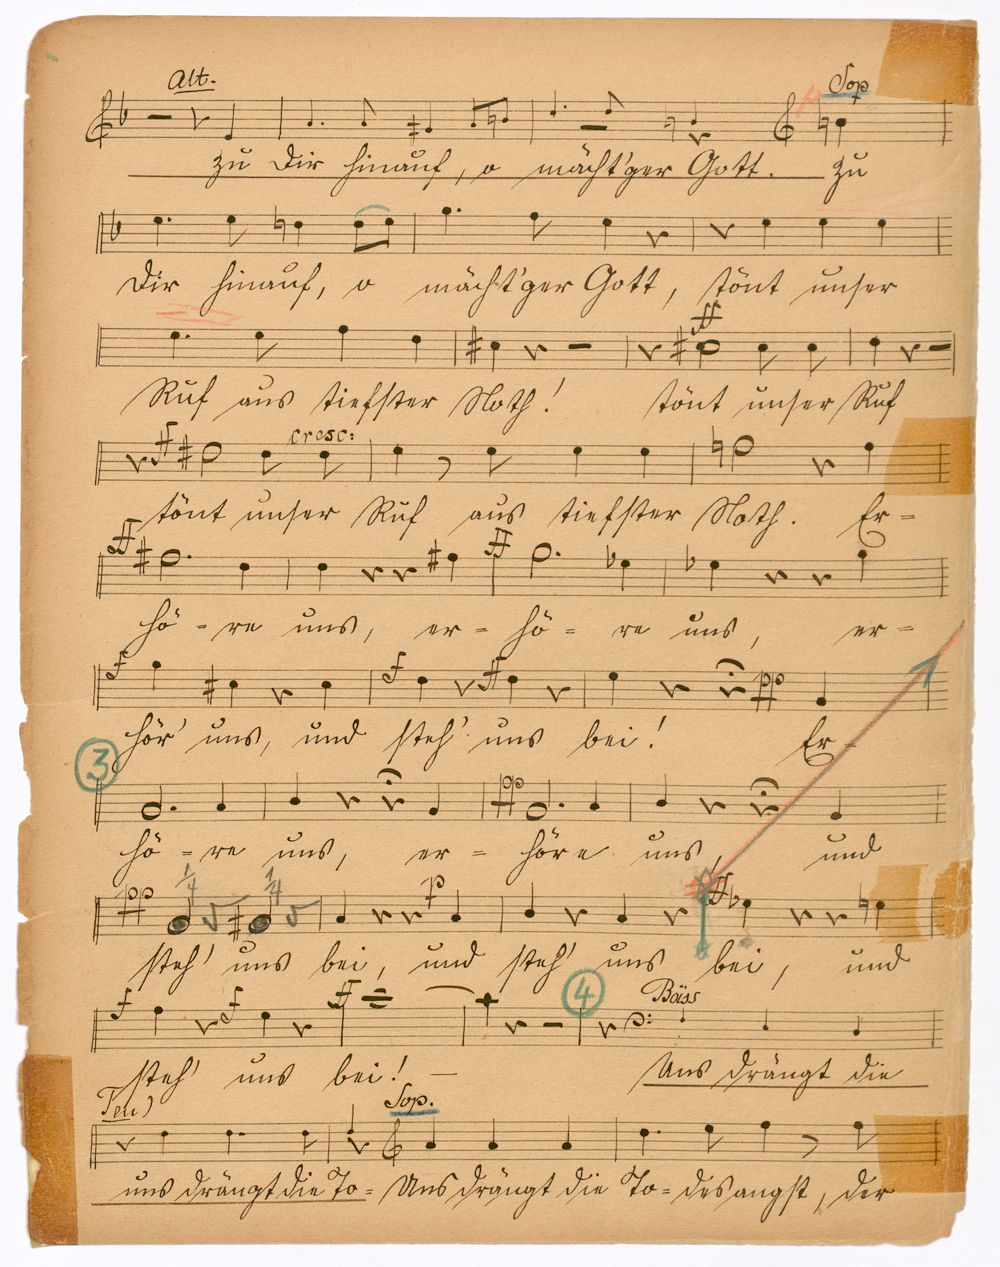 Alt. Sop
zu Dir hinauf, o mächt'ger Gott. zu
Dir hinauf, o mächt'ger Gott, tönt unser
ff
Ruf aus tiefster Noth! tönt unser Ruf
f cresc:
tönt unser Ruf aus tiefster Noth. Er=
ff ff
hö = re uns, er = hö = re uns, er=
f f ff
hör' uns, und steh' uns bei! pp Er=
3
hö = re uns, er = höre uns, und
pp 1/4 1/4 p ff
steh' uns bei, und steh' uns bei, und
f f ff 4 Bäss
steh' uns bei! — Uns drängt die
Ten) Sop.
uns drängt die To= Uns drängt die To= desangst, der